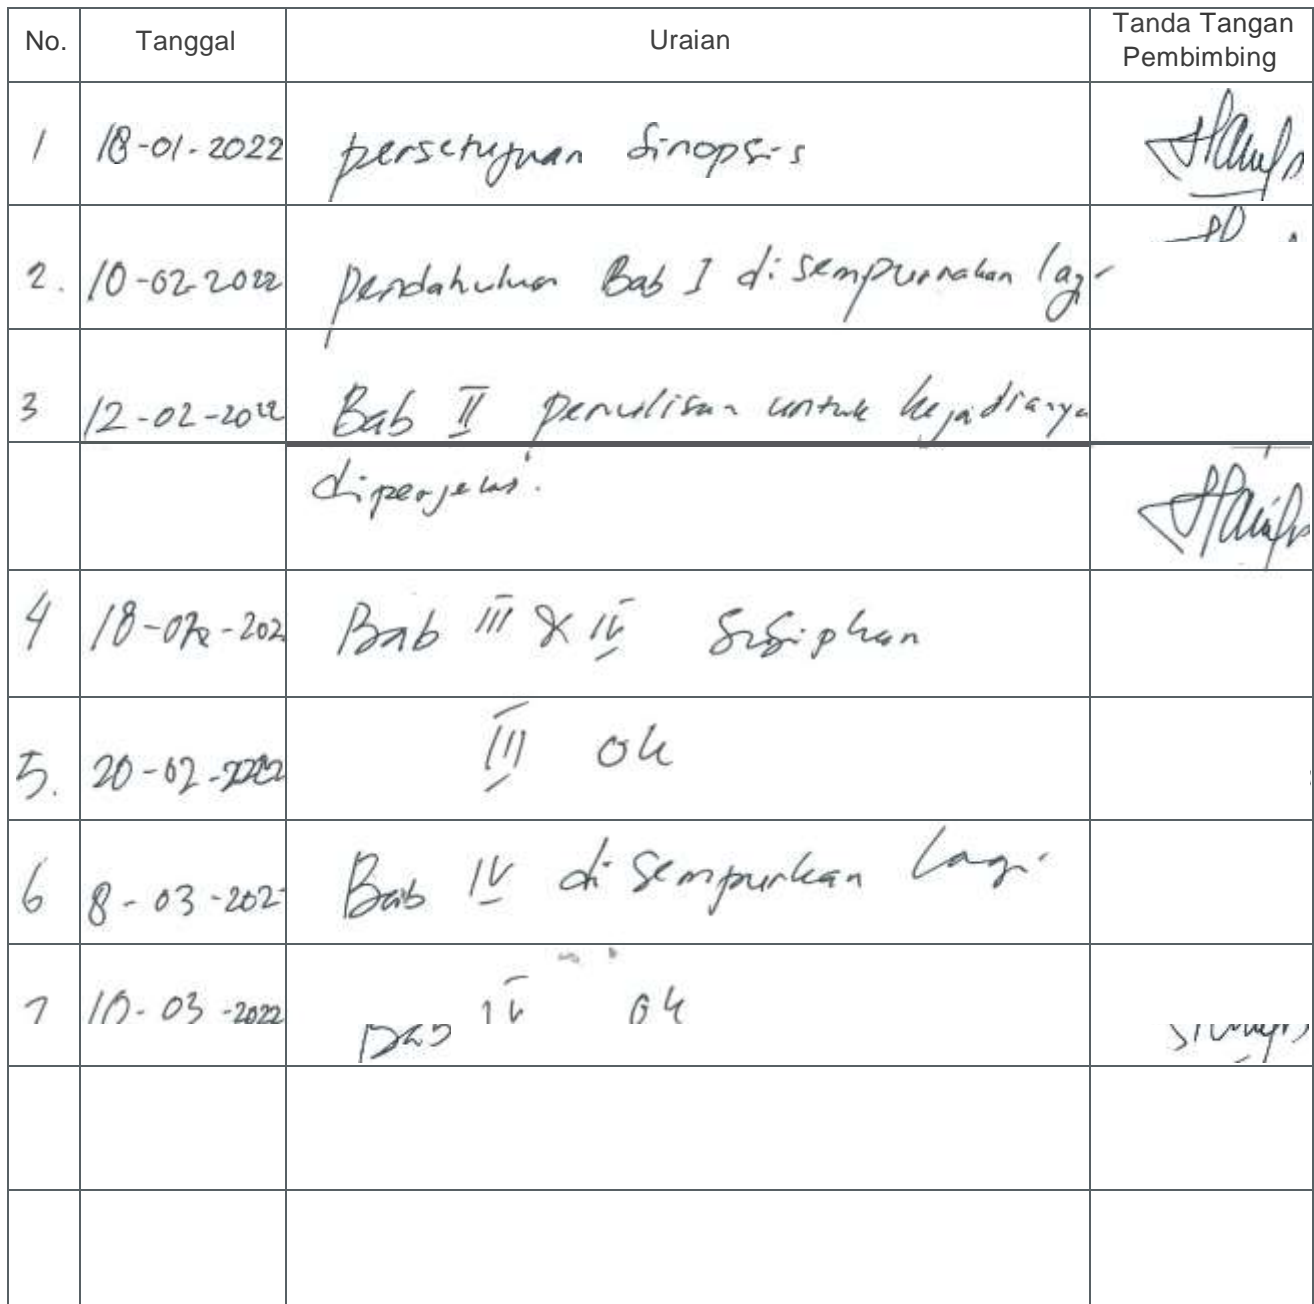 No. Tanggal Uraian Tanda Tangan
Pembimbing
1 18-01-2022 persetujuan Sinopsis
2. 10-02-2022 pendahuluan Bab I disempurnakan lagi
3 12-02-2022 Bab II penulisan untuk kejadianya
diperjelas.
4 18-02-202 Bab III & IV Sisipkan
5. 20-02-2022 III ok
6 8-03-202 Bab IV di Sempurkan lagi
7 10-03-2022 Bab IV ok